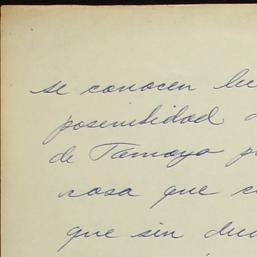 se conocen
posenibidad
de Tamayo
cosa que
que sin